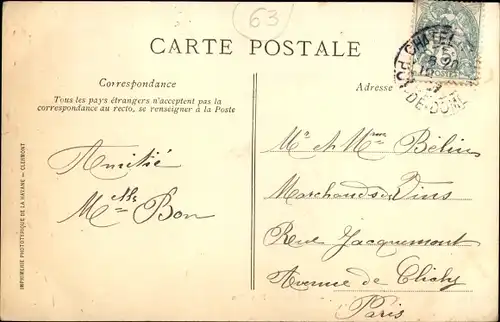 63
CARTE POSTALE
Correspondance
Tous les pays étrangers n'acceptent pas la
correspondance au recto, se renseigner à la Poste
Amitié
Melle Bon
Adresse
Mr et Mme Bélin
Marchand de Vins
Rue Jacquemont
Avenue de Clichy
Paris
CHATEL
PUY-DE-DOME
POSTES
IMPRIMERIE PHOTOTYPIQUE DE LA HAVANE — CLERMONT